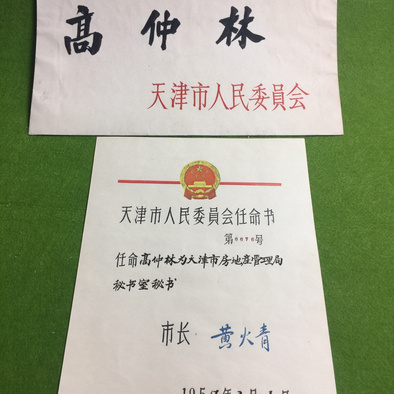 高仲林
天津市人民委員会
天津市人民委員会任命书
第0070号
任命高仲林为天津市房地产管理局
秘书室秘书
市长 黄火青